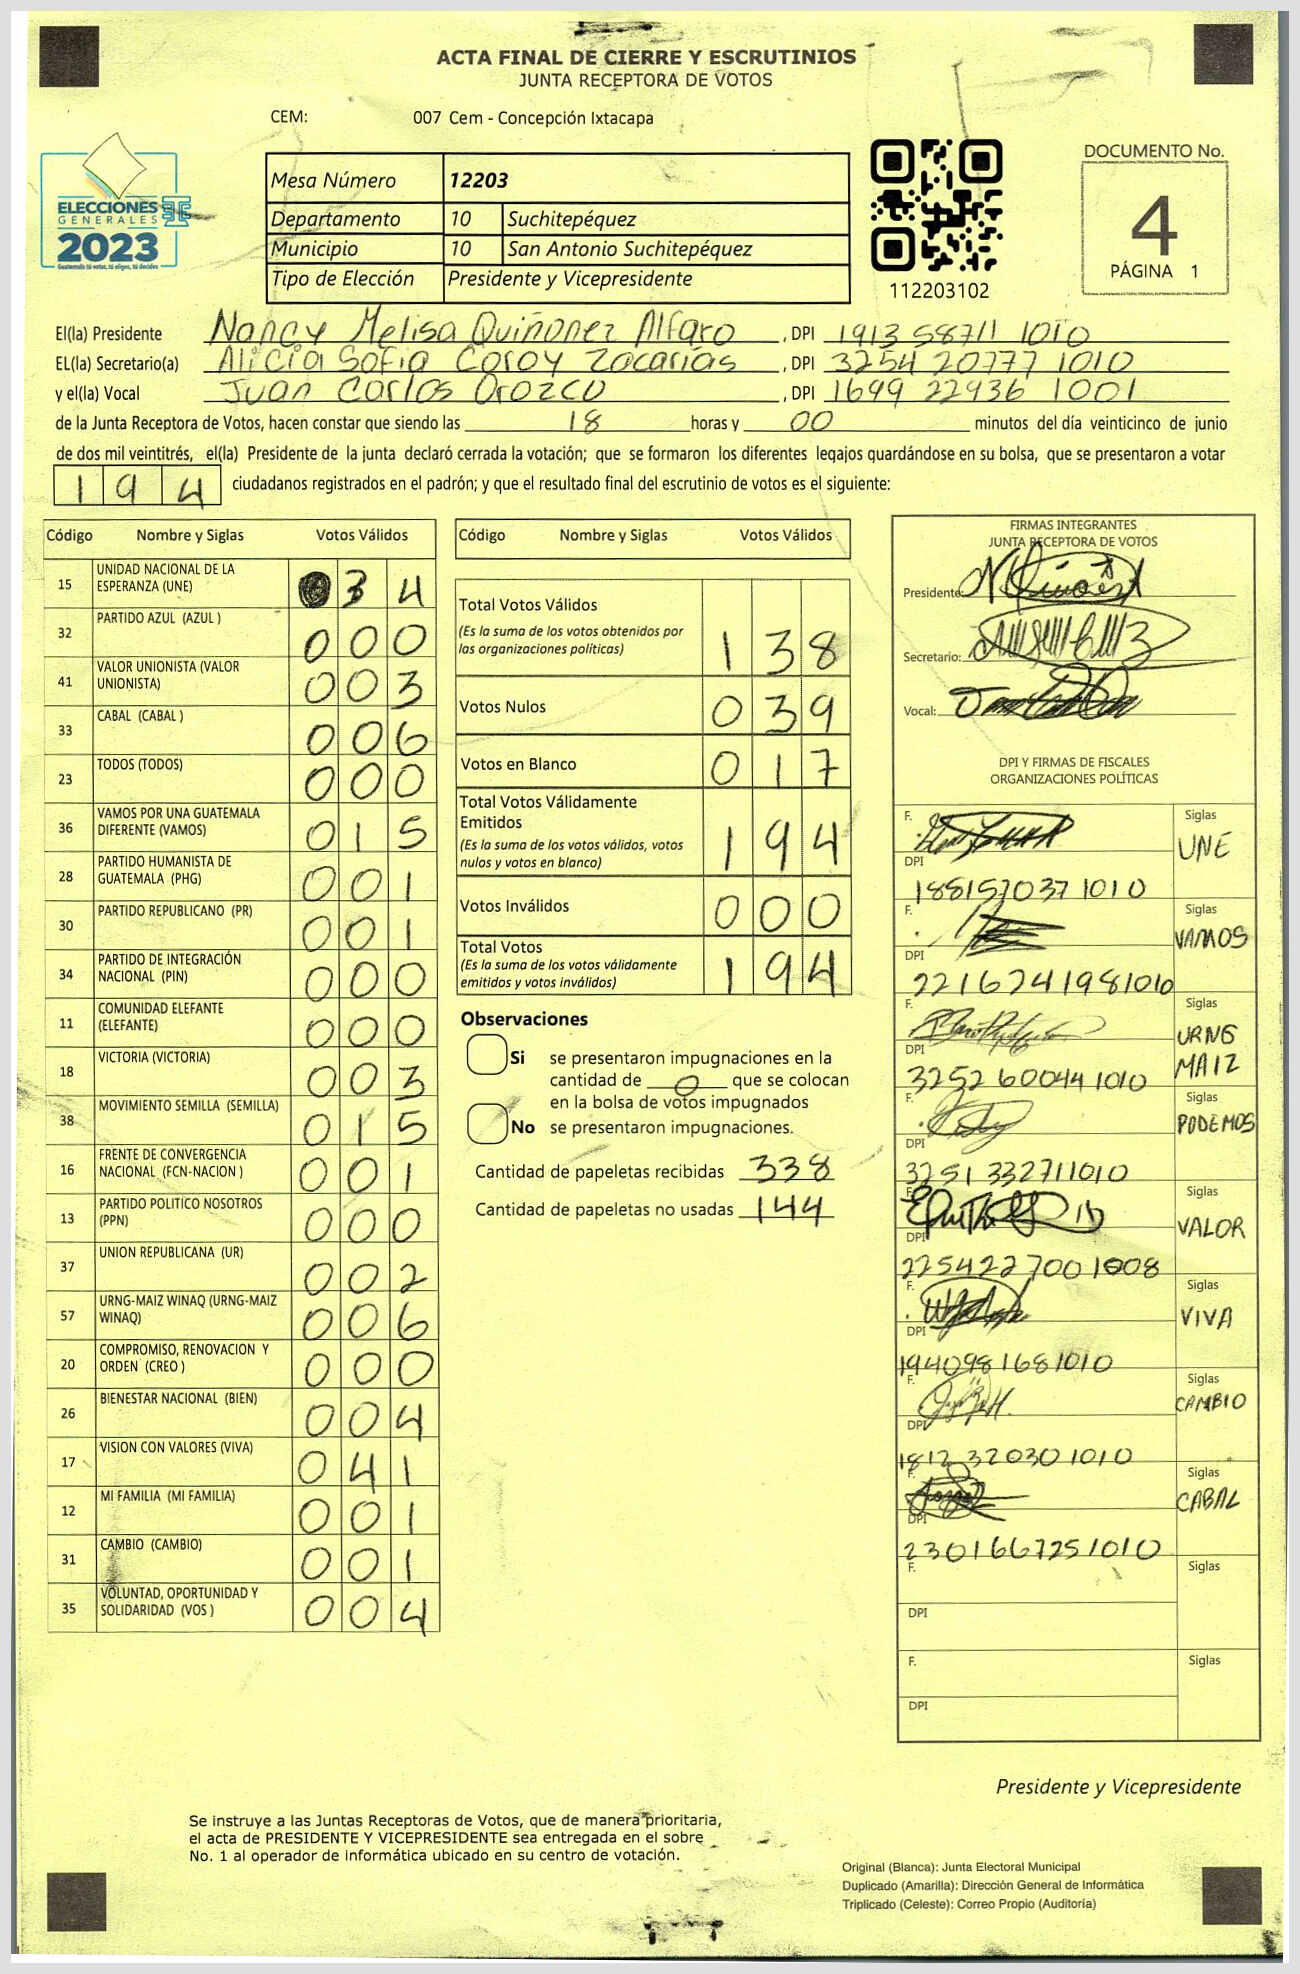 ACTA FINAL DE CIERRE Y ESCRUTINIOS
JUNTA RECEPTORA DE VOTOS
CEM: 007 Cem - Concepción Ixtacapa
ELECCIONES
GENERALES
2023
Guatemala tú votas, tú eliges, tú decides
Mesa Número 12203
Departamento 10 Suchitepéquez
Municipio 10 San Antonio Suchitepéquez
Tipo de Elección Presidente y Vicepresidente
112203102
DOCUMENTO No.
4
PÁGINA 1
El(la) Presidente Nancy Melisa Quiñonez Alfaro, DPI 1913 58711 1010
EL(la) Secretario(a) Alicia Sofia Coroy Zacarías, DPI 3254 20777 1010
y el(la) Vocal Juan Carlos Orozco, DPI 1699 22936 1001
de la Junta Receptora de Votos, hacen constar que siendo las 18 horas y 00 minutos del día veinticinco de junio
de dos mil veintitrés, el(la) Presidente de la junta declaró cerrada la votación; que se formaron los diferentes legajos guardándose en su bolsa, que se presentaron a votar
194 ciudadanos registrados en el padrón; y que el resultado final del escrutinio de votos es el siguiente:
Código Nombre y Siglas Votos Válidos
15 UNIDAD NACIONAL DE LA ESPERANZA (UNE) 34
32 PARTIDO AZUL (AZUL ) 000
41 VALOR UNIONISTA (VALOR UNIONISTA) 003
33 CABAL (CABAL ) 006
23 TODOS (TODOS) 000
36 VAMOS POR UNA GUATEMALA DIFERENTE (VAMOS) 015
28 PARTIDO HUMANISTA DE GUATEMALA (PHG) 001
30 PARTIDO REPUBLICANO (PR) 001
34 PARTIDO DE INTEGRACIÓN NACIONAL (PIN) 000
11 COMUNIDAD ELEFANTE (ELEFANTE) 000
18 VICTORIA (VICTORIA) 003
38 MOVIMIENTO SEMILLA (SEMILLA) 015
16 FRENTE DE CONVERGENCIA NACIONAL (FCN-NACION ) 001
13 PARTIDO POLITICO NOSOTROS (PPN) 000
37 UNION REPUBLICANA (UR) 002
57 URNG-MAIZ WINAQ (URNG-MAIZ WINAQ) 006
20 COMPROMISO, RENOVACION Y ORDEN (CREO ) 000
26 BIENESTAR NACIONAL (BIEN) 004
17 VISION CON VALORES (VIVA) 041
12 MI FAMILIA (MI FAMILIA) 001
31 CAMBIO (CAMBIO) 001
35 VOLUNTAD, OPORTUNIDAD Y SOLIDARIDAD (VOS ) 004
Código Nombre y Siglas Votos Válidos
Total Votos Válidos
(Es la suma de los votos obtenidos por
las organizaciones políticas) 138
Votos Nulos 039
Votos en Blanco 017
Total Votos Válidamente
Emitidos
(Es la suma de los votos válidos, votos
nulos y votos en blanco) 194
Votos Inválidos 000
Total Votos
(Es la suma de los votos válidamente
emitidos y votos inválidos) 194
Observaciones
Si se presentaron impugnaciones en la
cantidad de 0 que se colocan
en la bolsa de votos impugnados
No se presentaron impugnaciones.
Cantidad de papeletas recibidas 338
Cantidad de papeletas no usadas 144
FIRMAS INTEGRANTES
JUNTA RECEPTORA DE VOTOS
Presidente:
Secretario:
Vocal:
DPI Y FIRMAS DE FISCALES
ORGANIZACIONES POLÍTICAS
F. Siglas
UNE
DPI
188157037 1010
F. Siglas
VAMOS
DPI
2216741981010
F. Siglas
URNG
MAIZ
DPI
3252 60044 1010
F. Siglas
PODEMOS
DPI
3251 332711010
F. Siglas
VALOR
DPI
225422700 1008
F. Siglas
VIVA
DPI
1940981681010
F. Siglas
CAMBIO
DPI
1812 32030 1010
F. Siglas
CABAL
DPI
2301667251010
F. Siglas
DPI
F. Siglas
DPI
Presidente y Vicepresidente
Se instruye a las Juntas Receptoras de Votos, que de manera prioritaria,
el acta de PRESIDENTE Y VICEPRESIDENTE sea entregada en el sobre
No. 1 al operador de informática ubicado en su centro de votación.
Original (Blanca): Junta Electoral Municipal
Duplicado (Amarilla): Dirección General de Informática
Triplicado (Celeste): Correo Propio (Auditoría)